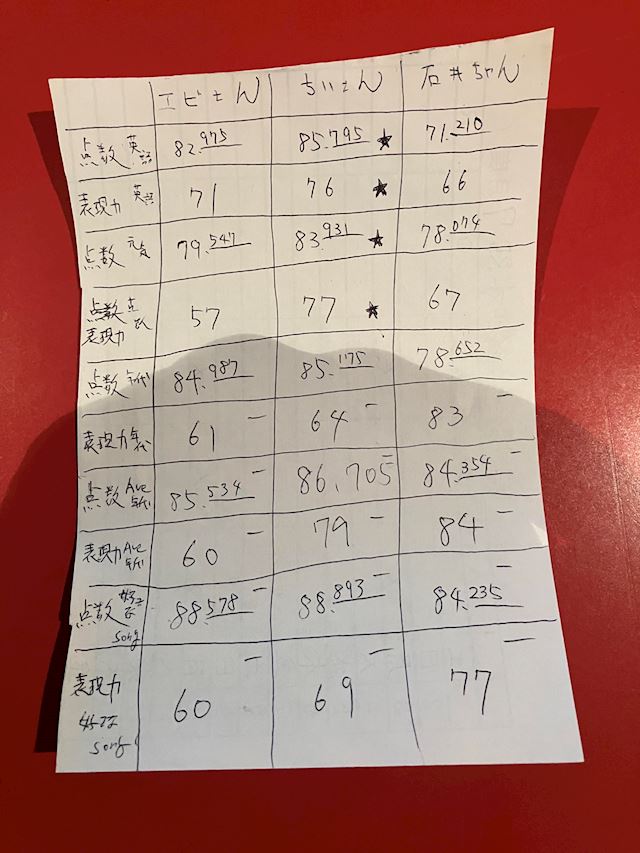 エビさん ちいさん 石井ちゃん
点数 英語 82.975 85.795 ★ 71.210
表現力 英語 71 76 ★ 66
点数 元気 79.547 83.931 ★ 78.074
点数
表現力 57 77 ★ 67
点数 年代 84.987 85.175 78.652
表現力 年代 61 64 83
点数 Ave 年代 85.534 86.705 84.354
表現力 Ave 年代 60 79 84
点数 好きな song 88.578 88.893 84.235
表現力 好きな song 60 69 77